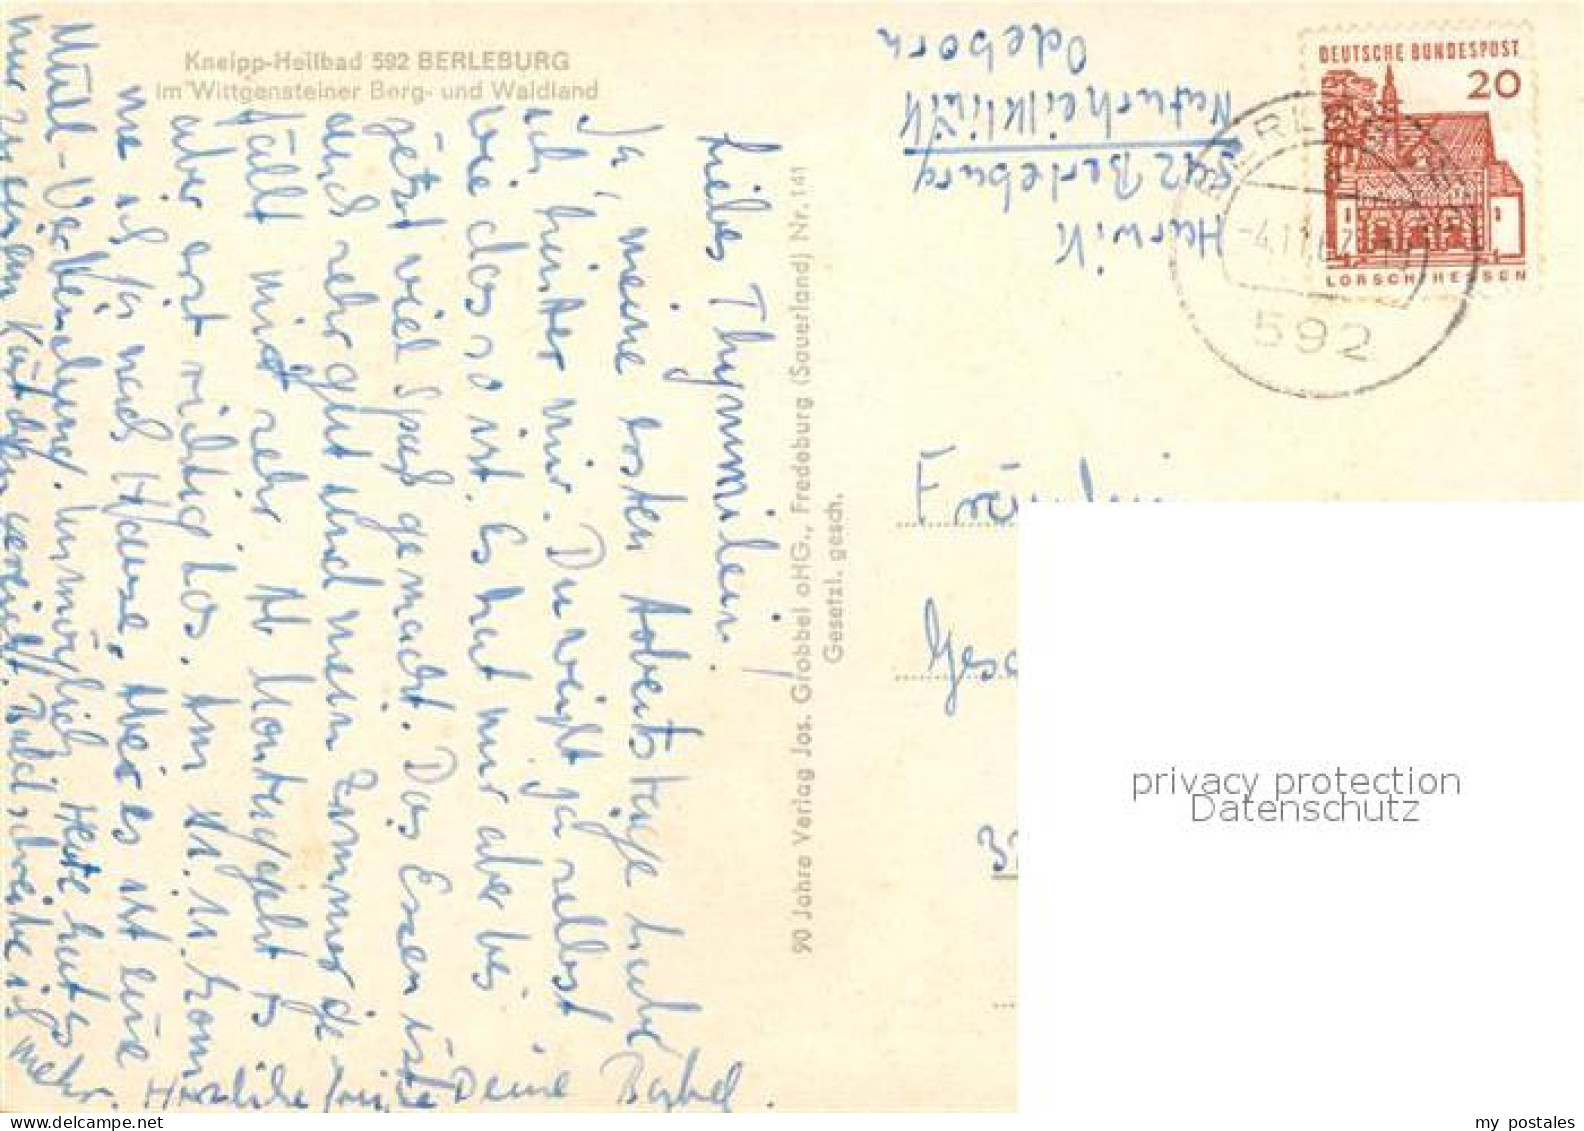 Kneipp-Heilbad 592 BERLEBURG
im Wittgensteiner Berg- und Waldland
Liebes Thymmilein!
Ja, meine ersten Arbeitstage habe
ich hinter mir. Du weißt ja selbst
wie das so ist. Es hat mir aber bis
jetzt viel Spaß gemacht. Das Essen ist
auch sehr gut und mein Zimmer ge-
fällt mir sehr. Ab Montag geht es
aber erst richtig los. Am 11.11. kom
me ich ja nach Hause. Aber es ist eine
Müll-Verbindung. Unmöglich. Heute hat es
nur zu einem Kärtchen gereicht. Bald schreibe ich
mehr.
Herzliche Grüße Deine Bärbel.
90 Jahre Verlag Jos. Grobbel oHG., Fredeburg (Sauerland) Nr. 141
Gesetzl. gesch.
Harwik
592 Berleburg
Naturheilklinik
Odeborn
DEUTSCHE BUNDESPOST
20
LORSCH/HESSEN
592
Fräulein
privacy protection
Datenschutz
my postales